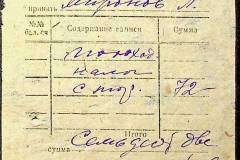 править Миронов Л.
№№ бал. сч. Содержание записи Сумма
подоход
налог
с тов. 72-
Итого
сумма Семьдесят две